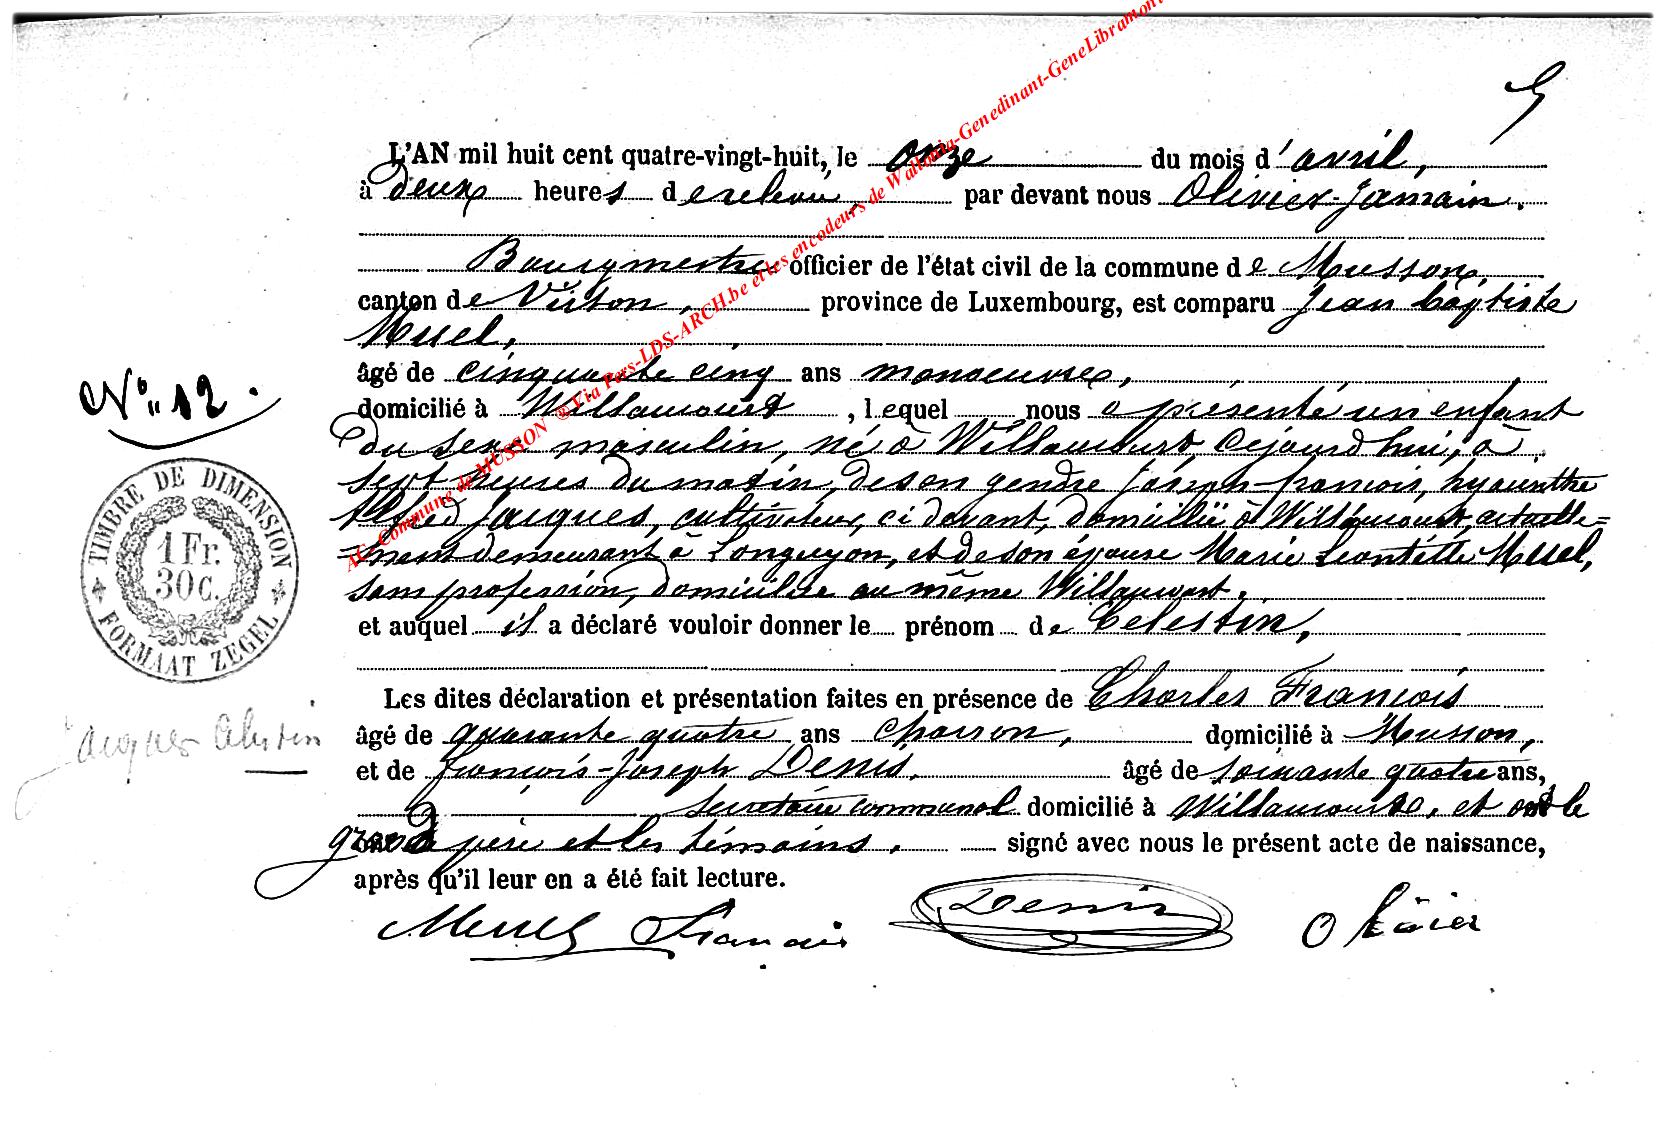 5
L'AN mil huit cent quatre-vingt-huit, le onze du mois d'avril,
à deux heures de relevée, par devant nous Olivier Jamain.
Bourgmestre officier de l'état civil de la commune de Musson,
canton de Virton, province de Luxembourg, est comparu Jean Baptiste
Musel,
âgé de cinquante cinq ans manoeuvre,
domicilié à Willancourt, lequel nous a présenté un enfant
du sexe masculin, né à Willancourt, cejourd'hui, à
sept heures du matin, de son gendre Joseph-françois, hyacinthe
Alfred Jacques, cultivateur, ci devant, domicilié à Willancourt, actuelle=
=ment demeurant à Longuyon, et de son épouse Marie Léontille Musel,
sans profession, domiciliée au même Willancourt.
et auquel il a déclaré vouloir donner le prénom de Celestin,
Les dites déclaration et présentation faites en présence de Charles François
âgé de quarante quatre ans charron, domicilié à Musson,
et de françois-Joseph Denis, âgé de soixante quatre ans,
secrétaire communal domicilié à Willancourt, et ont le
grand père et les témoins. signé avec nous le présent acte de naissance,
après qu'il leur en a été fait lecture.
Musel François Denis Olivier
N° 12.
TIMBRE DE DIMENSION
1 Fr.
30 C.
FORMAAT ZEGEL
Jacques Celestin
AG. Commune de MUSSON ® Via Pers-LDS-ARCH.be et les encodeurs de Wallonia-Genedinant-GeneLibramont